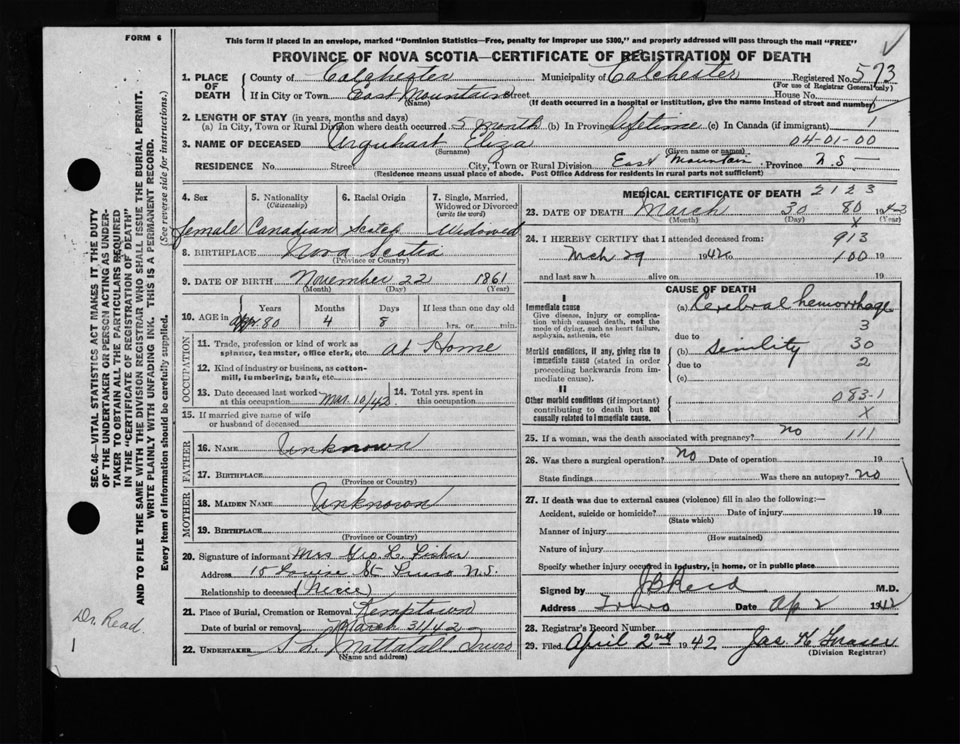 FORM 6
This form if placed in an envelope, marked "Dominion Statistics—Free, penalty for improper use $300," and properly addressed will pass through the mail "FREE"
PROVINCE OF NOVA SCOTIA—CERTIFICATE OF REGISTRATION OF DEATH
1. PLACE OF DEATH County of Colchester Municipality of Colchester Registered No. 573
(For use of Registrar General only)
If in City or Town East Mountain Street House No.
(Name) (If death occurred in a hospital or institution, give the name instead of street and number)
2. LENGTH OF STAY (in years, months and days)
(a) In City, Town or Rural Division where death occurred 5 month (b) In Province Lifetime (c) In Canada (if immigrant) 1
3. NAME OF DECEASED Urquhart Eliza 04-01-00
(Surname) (Given name or names)
RESIDENCE No. Street City, Town or Rural Division East Mountain Province N.S—
(Residence means usual place of abode. Post Office Address for residents in rural parts not sufficient)
4. Sex female
5. Nationality (Citizenship) Canadian
6. Racial Origin Scotch
7. Single, Married, Widowed or Divorced (write the word) Widowed
8. BIRTHPLACE Nova Scotia
(Province or Country)
9. DATE OF BIRTH November 22 1861
(Month) (Day) (Year)
10. AGE in Years Months Days If less than one day old
80 4 8 hrs. or min.
OCCUPATION
11. Trade, profession or kind of work as spinner, teamster, office clerk, etc. at Home
12. Kind of industry or business, as cotton-mill, lumbering, bank, etc.
13. Date deceased last worked at this occupation Mar 10/42
14. Total yrs. spent in this occupation
15. If married give name of wife or husband of deceased
FATHER
16. NAME Unknown
17. BIRTHPLACE
(Province or Country)
MOTHER
18. MAIDEN NAME Unknown
19. BIRTHPLACE
(Province or Country)
20. Signature of informant Mrs Geo. L. Fisher
Address 15 Louise St Truro N.S.
Relationship to deceased (Niece)
21. Place of Burial, Cremation or Removal Kemptown
Date of burial or removal March 31/42
22. UNDERTAKER Mattatall Truro
(Name and address)
MEDICAL CERTIFICATE OF DEATH 2123
23. DATE OF DEATH March 30 80 1943
(Month) (Day) x (Year)
24. I HEREBY CERTIFY that I attended deceased from: 913
Mch 29 1942 to 100 19
and last saw h alive on 19
CAUSE OF DEATH
I
Immediate cause
Give disease, injury or complication which caused death, not the mode of dying, such as heart failure, asphyxia, asthenia, etc
(a) Cerebral hemorrhage
3
due to
Morbid conditions, if any, giving rise to immediate cause (stated in order proceeding backwards from immediate cause).
(b) Senility 30
due to 2
(c)
II
Other morbid conditions (if important) contributing to death but not causally related to immediate cause.
083-1
X
25. If a woman, was the death associated with pregnancy? no 111
26. Was there a surgical operation? No Date of operation 19
State findings Was there an autopsy? no
27. If death was due to external causes (violence) fill in also the following:—
Accident, suicide or homicide? Date of injury 19
(State which)
Manner of injury
(How sustained)
Nature of injury
Specify whether injury occurred in industry, in home, or in public place
Signed by JB Reid M.D.
Address Truro Date Ap 2 1942
28. Registrar's Record Number
29. Filed April 2nd 1942 Jas K Fraser
(Division Registrar)
SEC. 46—VITAL STATISTICS ACT MAKES IT THE DUTY
OF THE UNDERTAKER OR PERSON ACTING AS UNDER-
TAKER TO OBTAIN ALL THE PARTICULARS REQUIRED
IN THE "CERTIFICATE OF REGISTRATION OF DEATH"
AND TO FILE THE SAME WITH THE DIVISION REGISTRAR WHO SHALL ISSUE THE BURIAL PERMIT.
WRITE PLAINLY WITH UNFADING INK. THIS IS A PERMANENT RECORD.
Every item of information should be carefully supplied. (See reverse side for instructions.)
Dr. Read
1